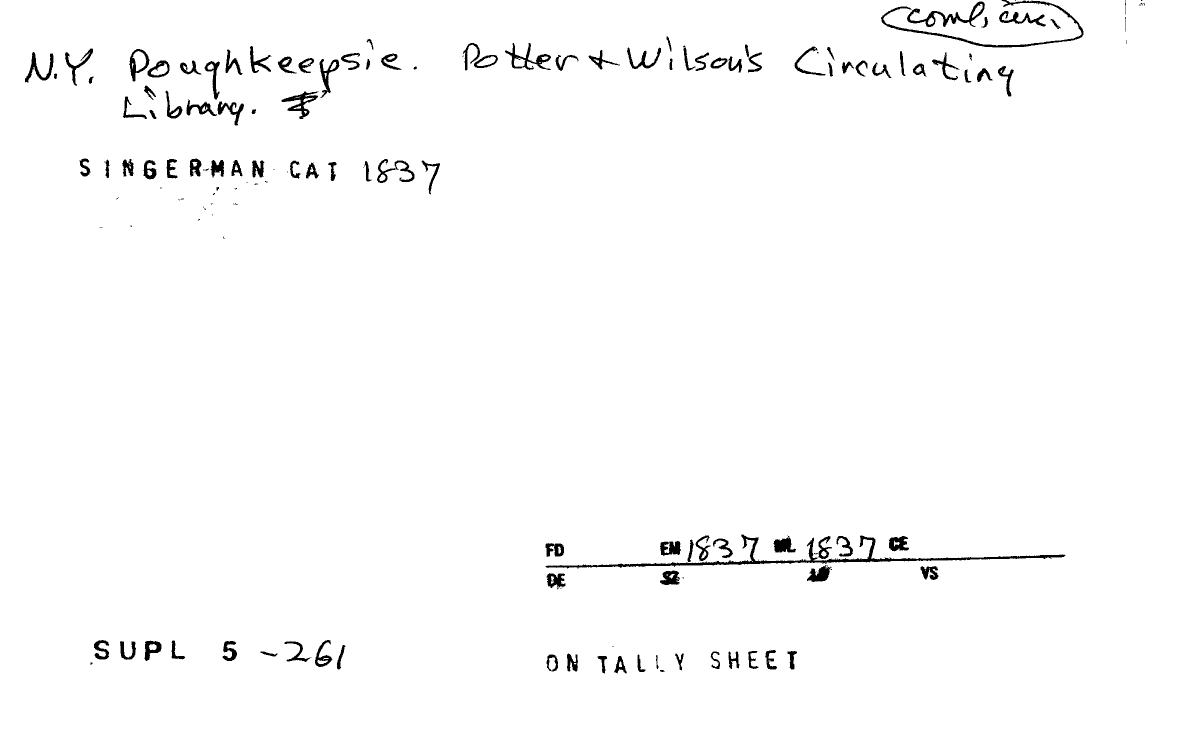 coml, circ.
N.Y. Poughkeepsie. Potter + Wilson's Circulating
Library.
SINGERMAN CAT 1837
FD EM 1837 ML 1837 CE
DE SZ VS
SUPL 5 -261
ON TALLY SHEET